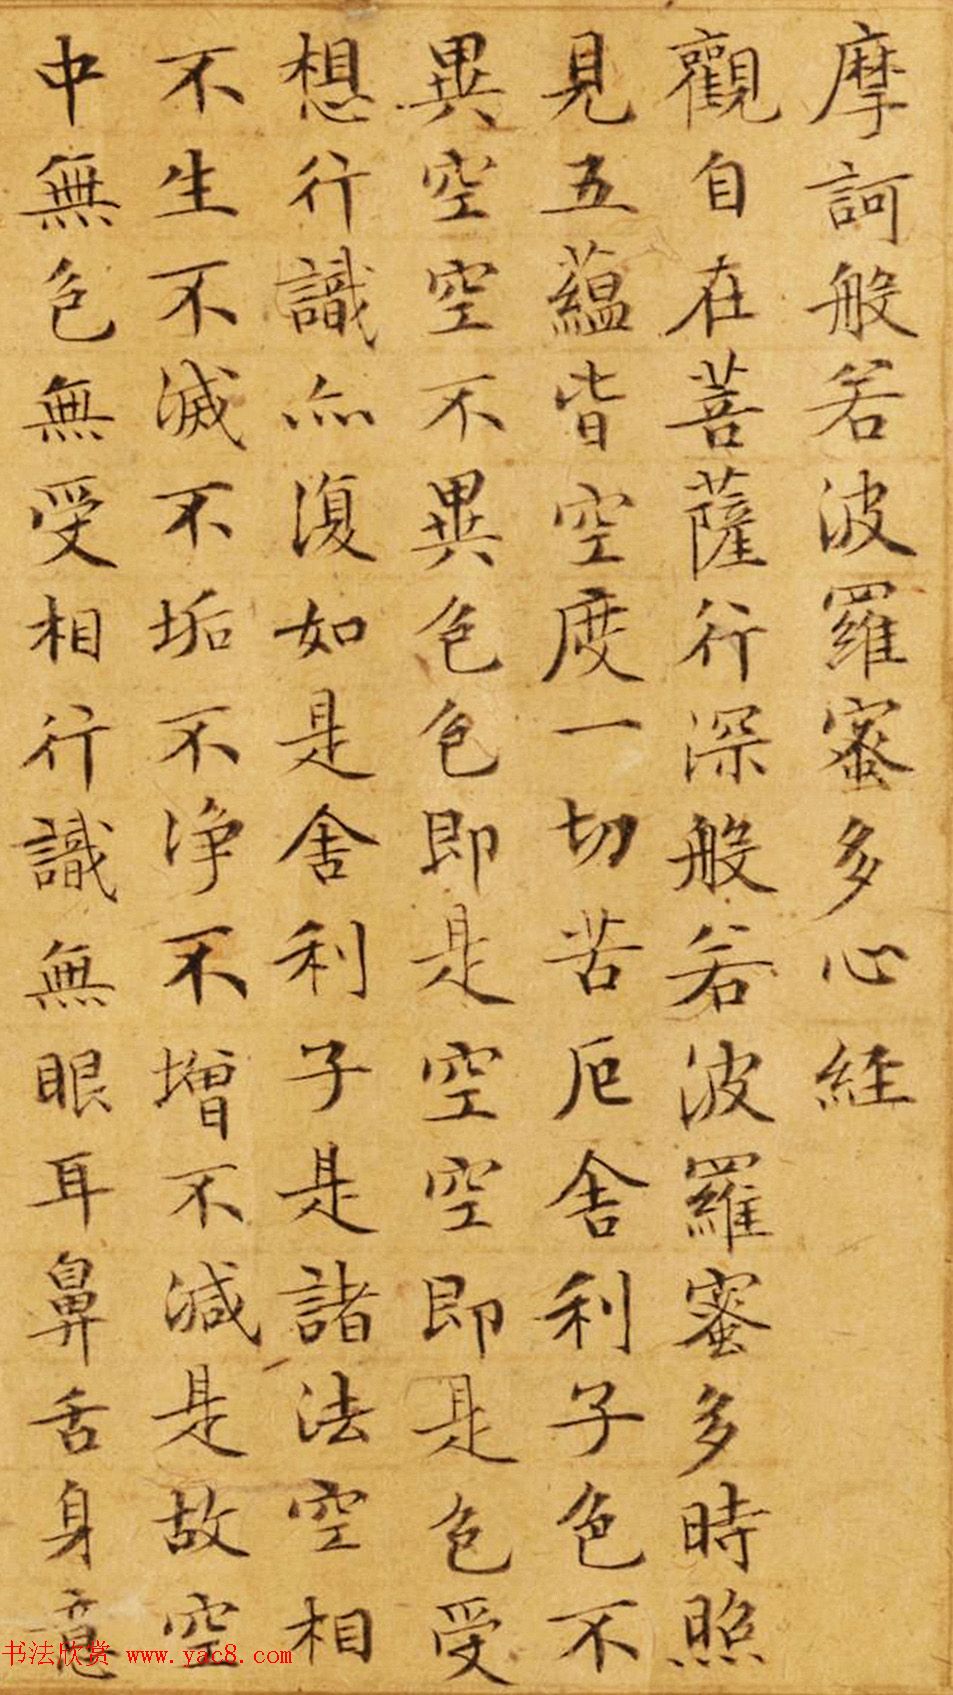 摩訶般若波羅蜜多心経
觀自在菩薩行深般若波羅蜜多時照
見五蘊皆空度一切苦厄舍利子色不
異空空不異色色即是空空即是色受
想行識亦復如是舍利子是諸法空相
不生不滅不垢不淨不增不減是故空
中無色無受相行識無眼耳鼻舌身意
书法欣赏 www.yac8.com